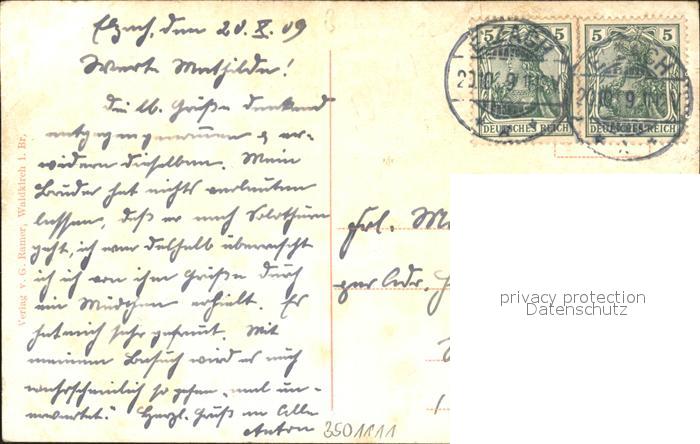 Elzach, den 20. X. 09
Werte Mathilde!
Die lb. Grüße dankend
entgegengenommen & er-
widern dieselben. Mein
Bruder hat nichts verlauten
lassen, daß er nach Solothurn
geht, ich war deshalb überrascht
ich von ihm Grüße durch
ein Mädchen erhielt. Es
hat mich sehr gefreut. Mit
meinem Besuch wird es auch
wahrscheinlich so gehen „mal un-
erwartet." Herzl. Gruß an Alle
Anton
3501111
Verlag v. G. Ramer, Waldkirch i. Br.
5 5
5 5
DEUTSCHES REICH
DEUTSCHES REICH
ELZACH
20.10.09
ELZACH
20.10.09
Frl.
per Adr.
privacy protection
Datenschutz